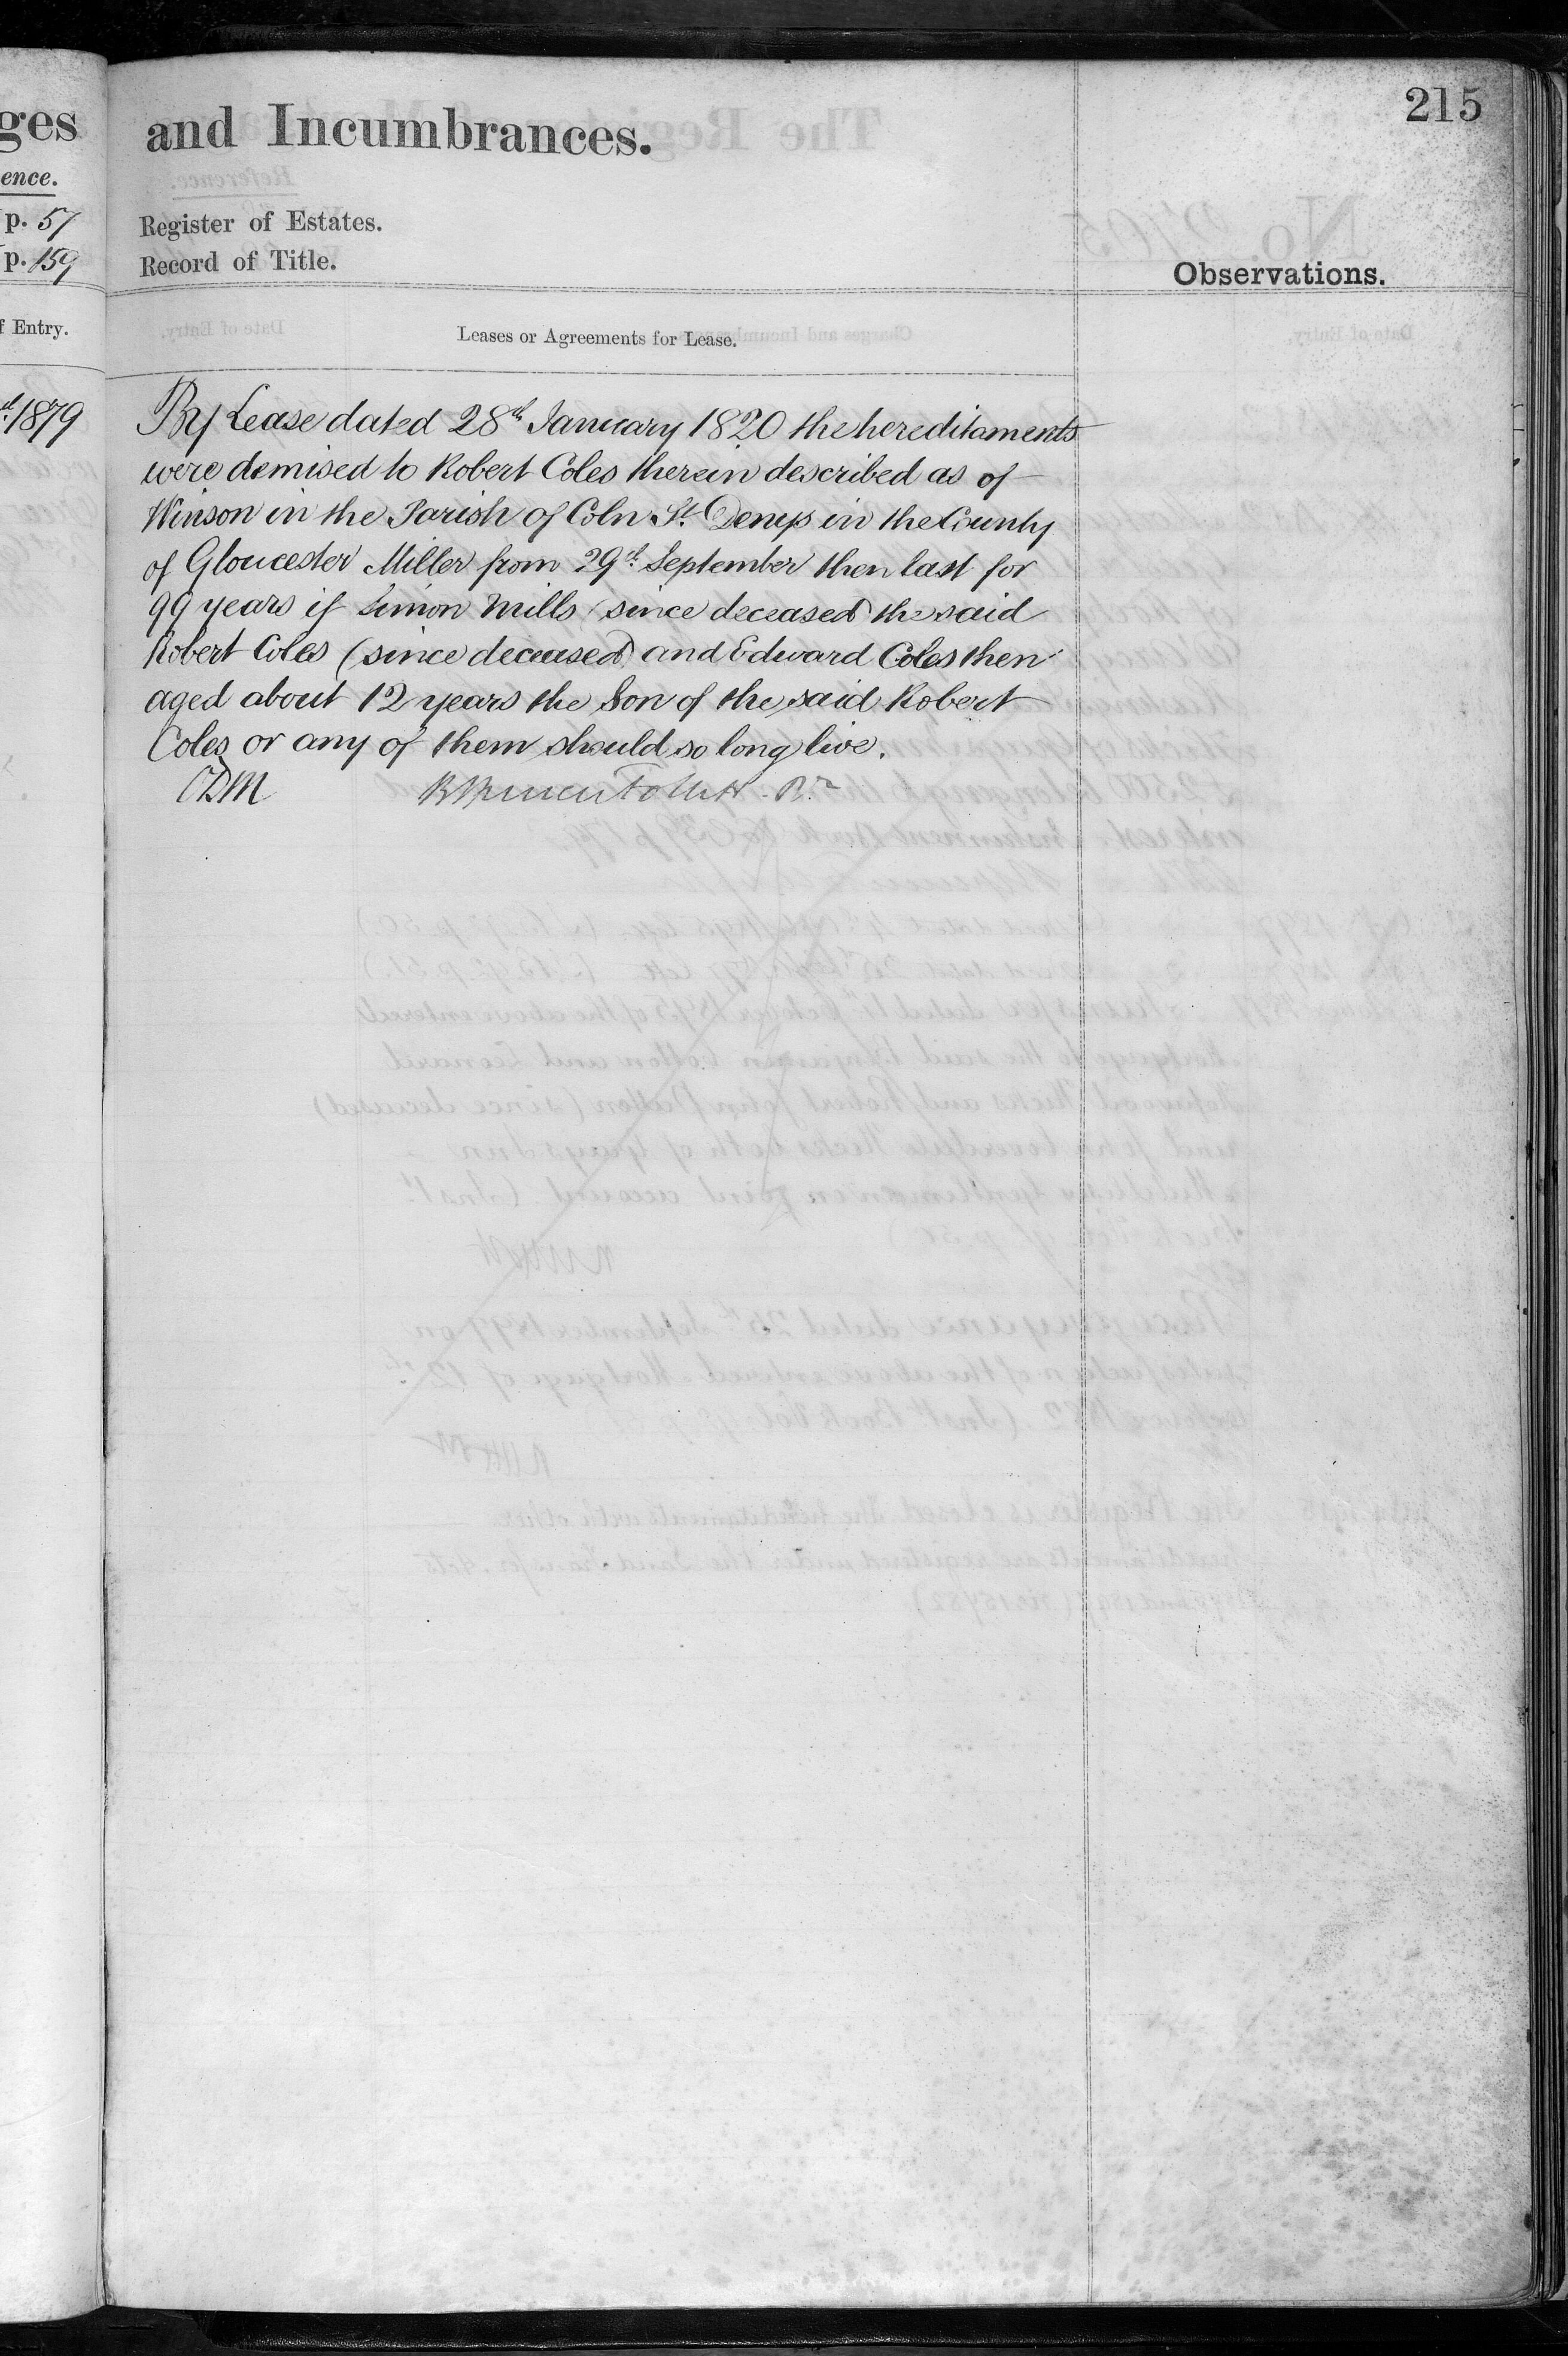 215
and Incumbrances.
Register of Estates.
Record of Title.
Observations.
Leases or Agreements for Lease.
By Lease dated 28th January 1820 the hereditaments
were demised to Robert Coles therein described as of
Winson in the Parish of Coln St. Denys in the County
of Gloucester Miller from 29th September then last for
99 years if Simon Mills (since deceased) the said
Robert Coles (since deceased) and Edward Coles then
aged about 12 years the Son of the said Robert
Coles or any of them should so long live.
ges
ence.
p. 57
p. 159
f Entry.
1879